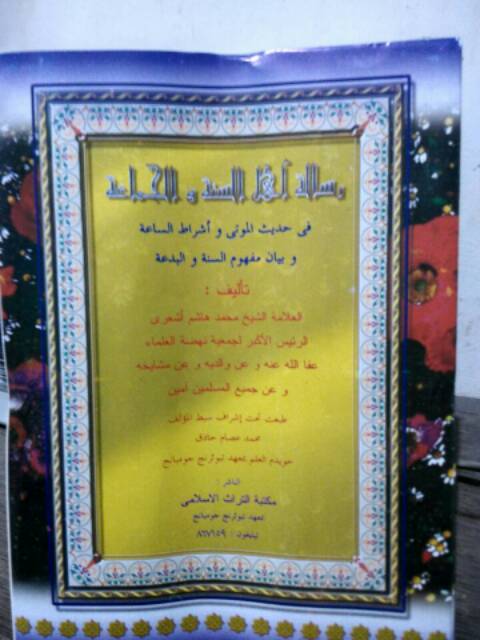 رسالة أهل السنة و الجماعة
فى حديث الموتى و أشراط الساعة
و بيان مفهوم السنة و البدعة
تأليف :
العلامة الشيخ محمد هاشم أشعرى
الرئيس الأكبر لجمعية نهضة العلماء
عفا الله عنه و عن والديه و عن مشايخه
و عن جميع المسلمين آمين
طبعت تحت إشراف سبط المؤلف
محمد عصام حاذق
خويدم العلم بمعهد تبوئرنج جومبانج
الناشر :
مكتبة التراث الاسلامى
بمعهد تبوئرنج جومبانج
تيليفون : ٨٦٧٦٥٩